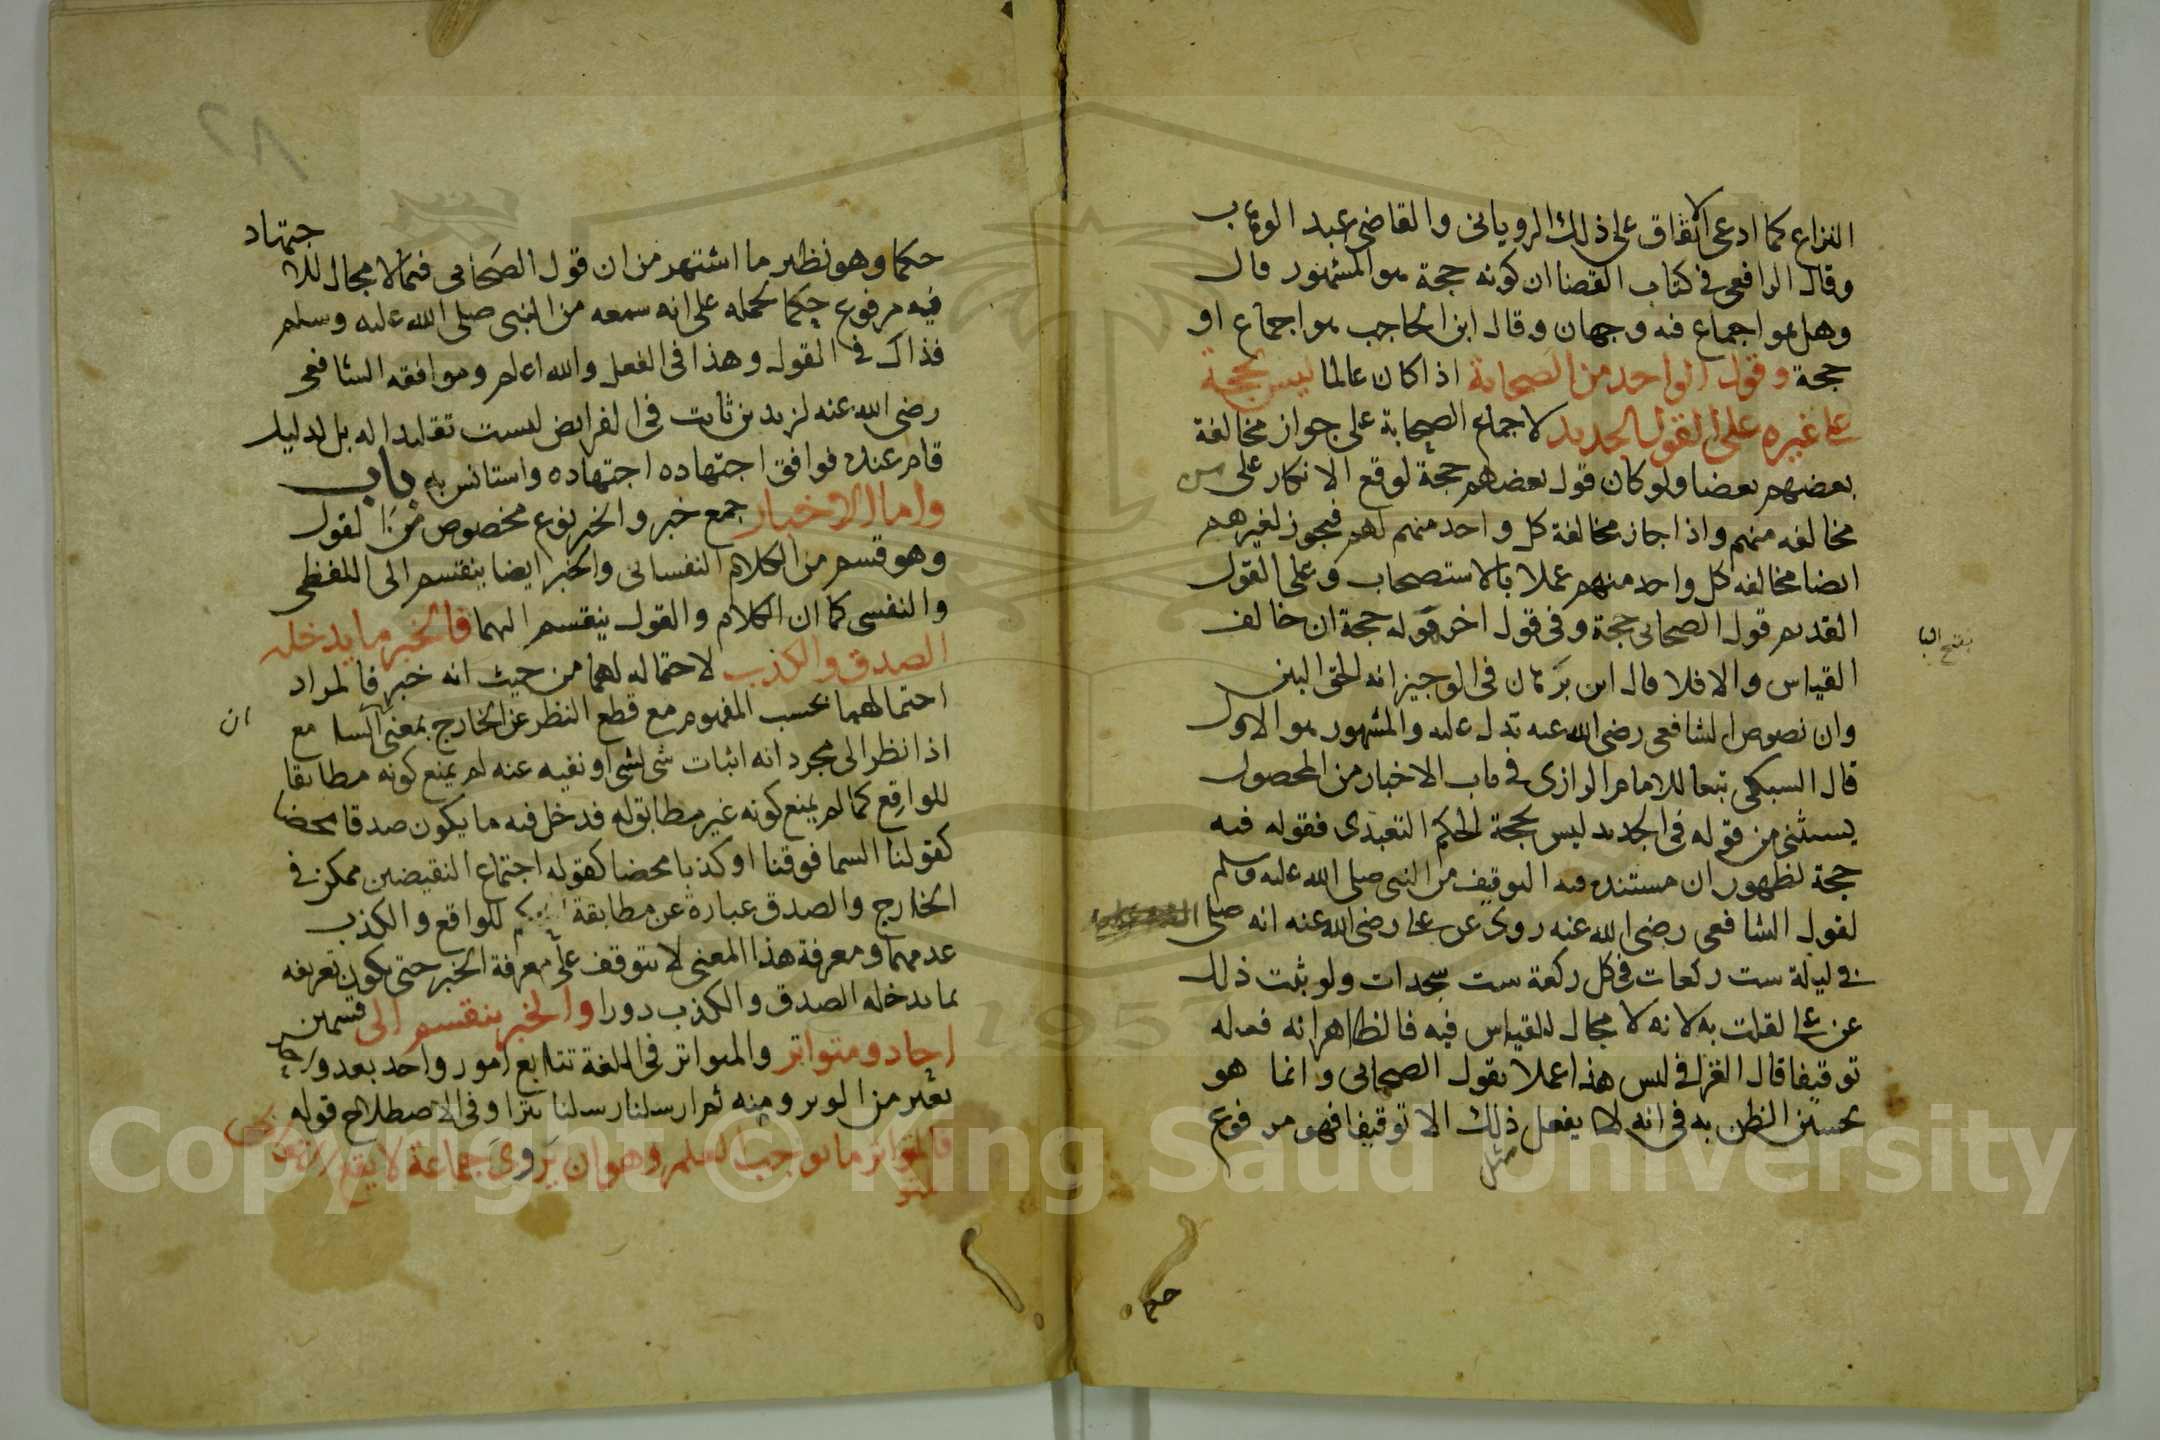 النزاع كما ادعى الاتفاق على ذلك الروياني والقاضي عبد الوهاب
وقال الرافعي في كتاب القضا ان كونه حجة هو المشهور قال
وهل هو اجماع فيه وجهان وقال ابن الحاجب هو اجماع او
حجة وقول الواحد من الصحابة اذا كان عالما ليس بحجة
على غيره على القول الجديد لاجماع الصحابة على جواز مخالفة
بعضهم بعضا ولو كان قول بعضهم حجة لوقع الانكار على من
مخالفه منهم واذا جاز مخالفة كل واحد منهم لهم فيجوز لغيرهم
ايضا مخالفه كل واحد منهم عملا بالاستصحاب وعلى القول
القديم قول الصحابي حجة وفي قول اخر قوله حجة ان خالف
بفتح البا
القياس والا فلا قال ابن برهان في الوجيز انه الحق البين
وان نصوص الشافعي رضي الله عنه تدل عليه والمشهور هو الاول
قال السبكي تبعا للامام الرازي في باب الاخبار من المحصول
يستثنى من قوله في الجديد ليس بحجة الحكم التعبدي فقوله فيه
حجة لظهور ان مستنده فيه التوقيف من النبي صلى الله عليه وسلم
لقول الشافعي رضي الله عنه روى عن علي رضي الله عنه انه صلى
في ليلة ست ركعات في كل ركعة ست سجدات ولو ثبت ذلك
عن علي لقلت به لانه لا مجال للقياس فيه فالظاهر انه فعله
توقيفا قال الغزالي ليس هذا عملا بقول الصحابي وانما هو
تحسين الظن به في انه لا يفعل ذلك الا توقيفا فهو مرفوع
مثل
حكما
٨٢
حكما وهو نظير ما اشتهر من ان قول الصحابي فيما لا مجال للاجتهاد
فيه مرفوع حكما لحمله على انه سمعه من النبي صلى الله عليه وسلم
فذاك في القول وهذا في الفعل والله اعلم وموافقه الشافعي
رضي الله عنه لزيد بن ثابت في الفرايض ليست تقليدا له بل لدليل
قام عنده فوافق اجتهاده اجتهاده واستانس به باب
واما الاخبار جمع خبر والخبر نوع مخصوص من القول
وهو قسم من الكلام النفساني والخبر ايضا ينقسم الى اللفظي
والنفسي كما ان الكلام والقول ينقسم اليهما فالخبر ما يدخله
الصدق والكذب لاحتماله لهما من حيث انه خبر فالمراد
احتمالهما بحسب المفهوم مع قطع النظر عن الخارج بمعنى ان السامع
اذا نظر الى مجرد انه اثبات شي لشي او نفيه عنه لم يمنع كونه مطابقا
للواقع كما لم يمنع كونه غير مطابق له فدخل فيه ما يكون صدقا محضا
كقولنا السما فوقنا او كذبا محضا كقوله اجتماع النقيضين ممكن في
الخارج والصدق عبارة عن مطابقة للواقع والكذب
عدمهما ومعرفة هذا المعنى لا تتوقف على معرفة الخبر حتى يكون تعريفه
بما يدخله الصدق والكذب دورا والخبر ينقسم الى قسمين
احاد ومتواتر والمتواتر في اللغة تتابع امور واحد بعد واحد
بفتر من الوتر ومنه ثم ارسلنا رسلنا تترا وفي الاصطلاح قوله
فالمتواتر ما يوجب العلم وهو ان يروى جماعة لا يقع